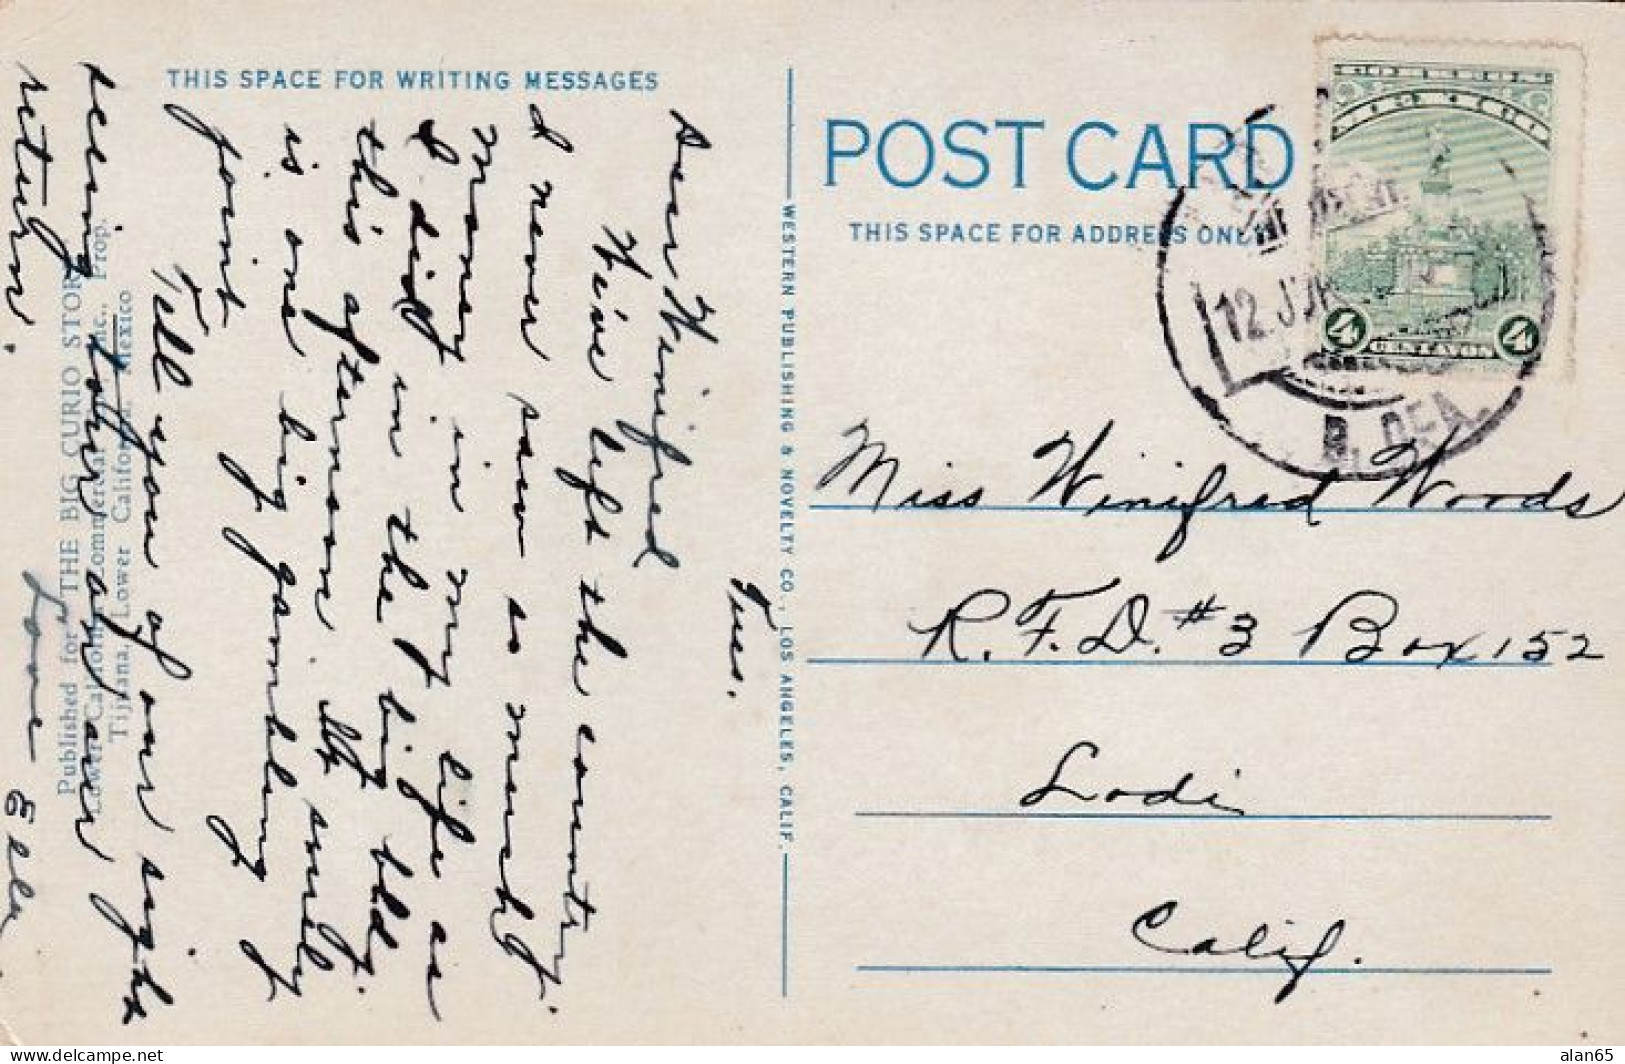 THIS SPACE FOR WRITING MESSAGES
Tues.
Dear Winifred
We've left the country.
I never saw so much
money in my life as
I did in the big bldg.
this afternoon. It smely
is one big gambling
joint
Tell you of our sight
seeing today after our
return.
Love Ella
Published for "THE BIG CURIO STORE"
Lower California Commercial Inc., Prop.
Tijuana, Lower California, Mexico
WESTERN PUBLISHING & NOVELTY CO., LOS ANGELES, CALIF.
POST CARD
THIS SPACE FOR ADDRESS ONLY
4 CENTAVOS 4
12 JUN
B. CFA.
Miss Winifred Woods
R.F.D. #3 Box 152
Lodi
Calif.
alan65